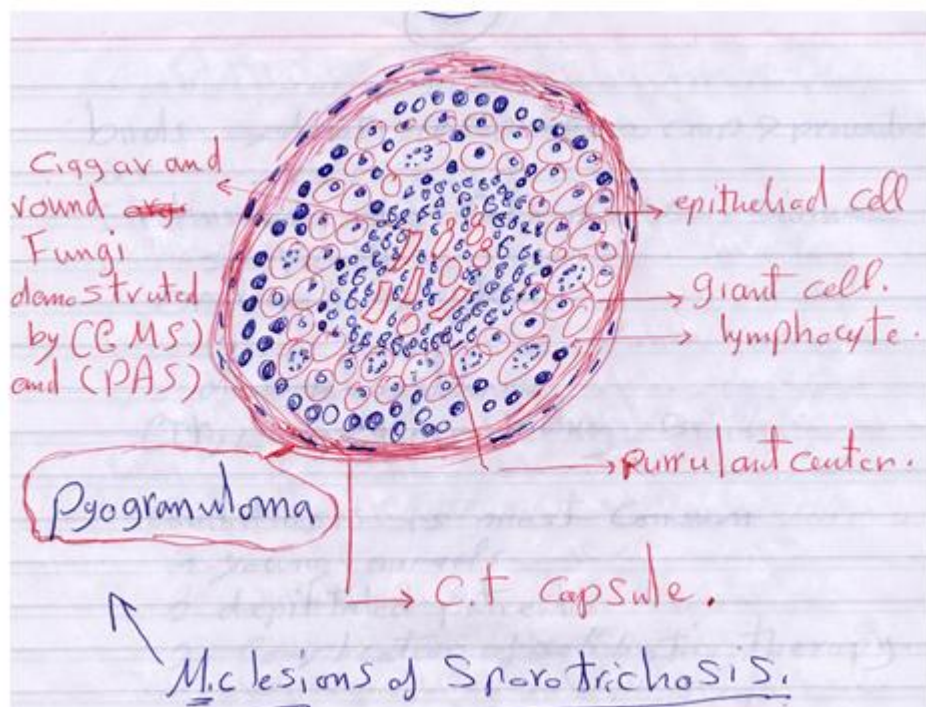 Ciggar and
round
Fungi
demostruted
by (GMS)
and (PAS)
epitheliad cell
giant cell.
lymphocyte.
purrulant center.
pyogranuloma
C.t capsule.
M.c lesions of Sporotrichosis.